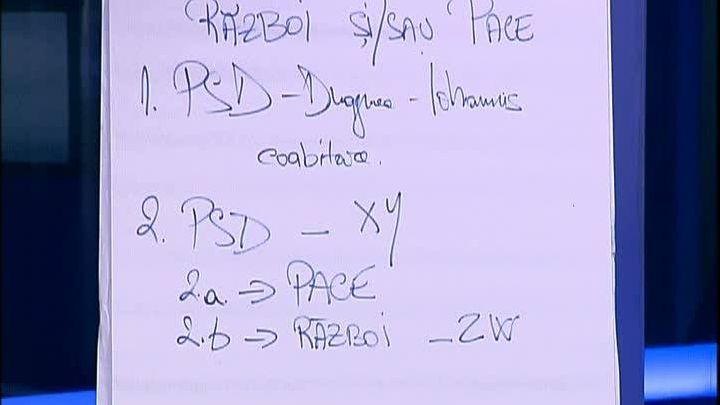 RĂZBOI ȘI/SAU PACE
1. PSD - Dragnea - Iohannis
coabitare.
2. PSD - XY
2.a. => PACE
2.b => RĂZBOI - ZW